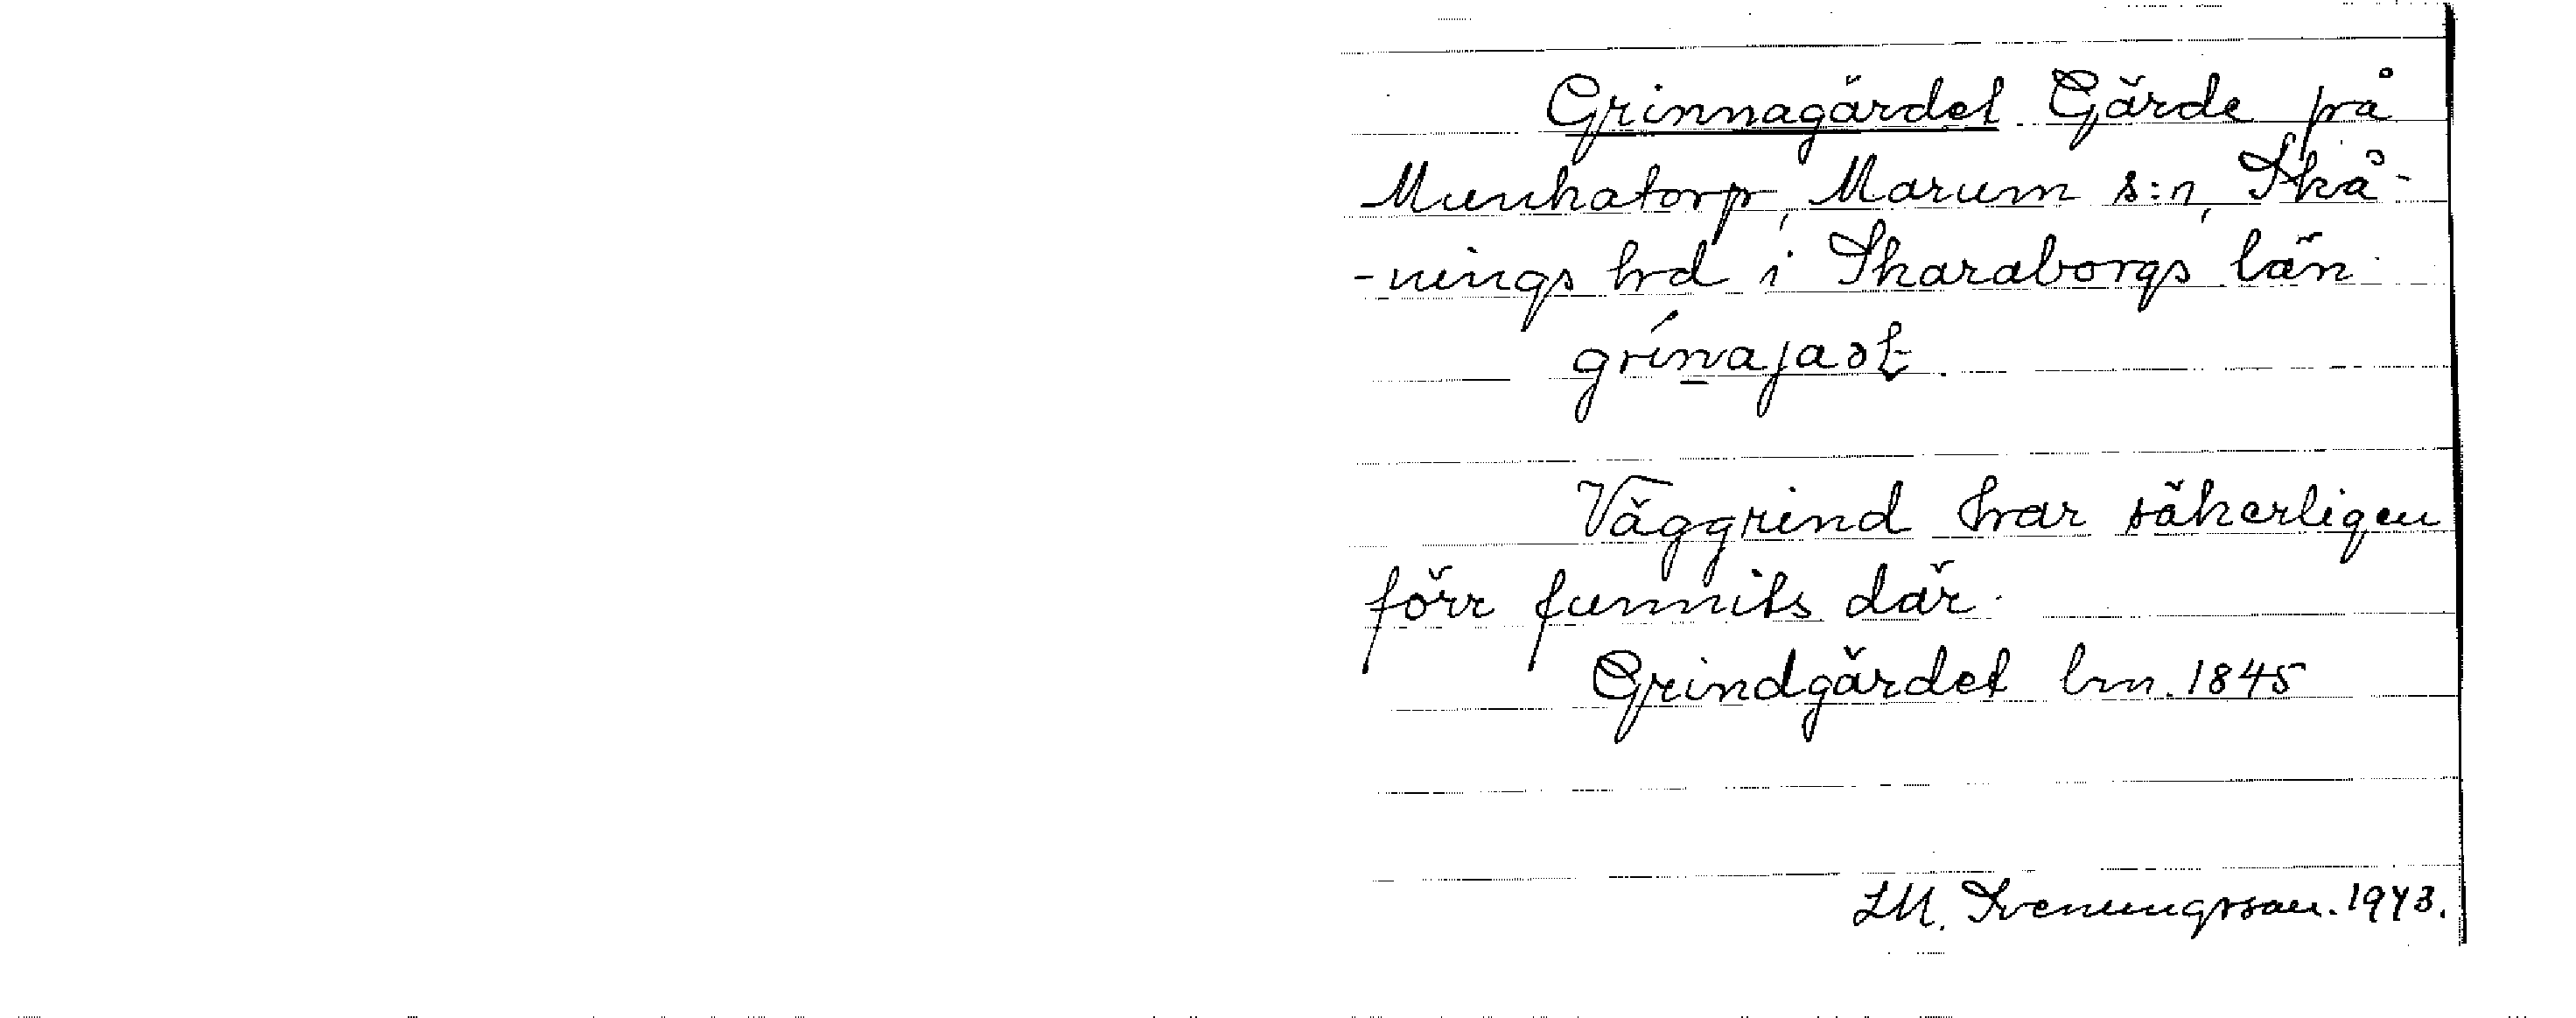 Grinnagärdet Gärde på
Munkatorp, Marum s:n, Skå-
-nings hd i Skaraborgs län
Väggrind har säkerligen
förr funnits där.
Grindgärdet lm. 1845
LM. Svenungsson. 1943.